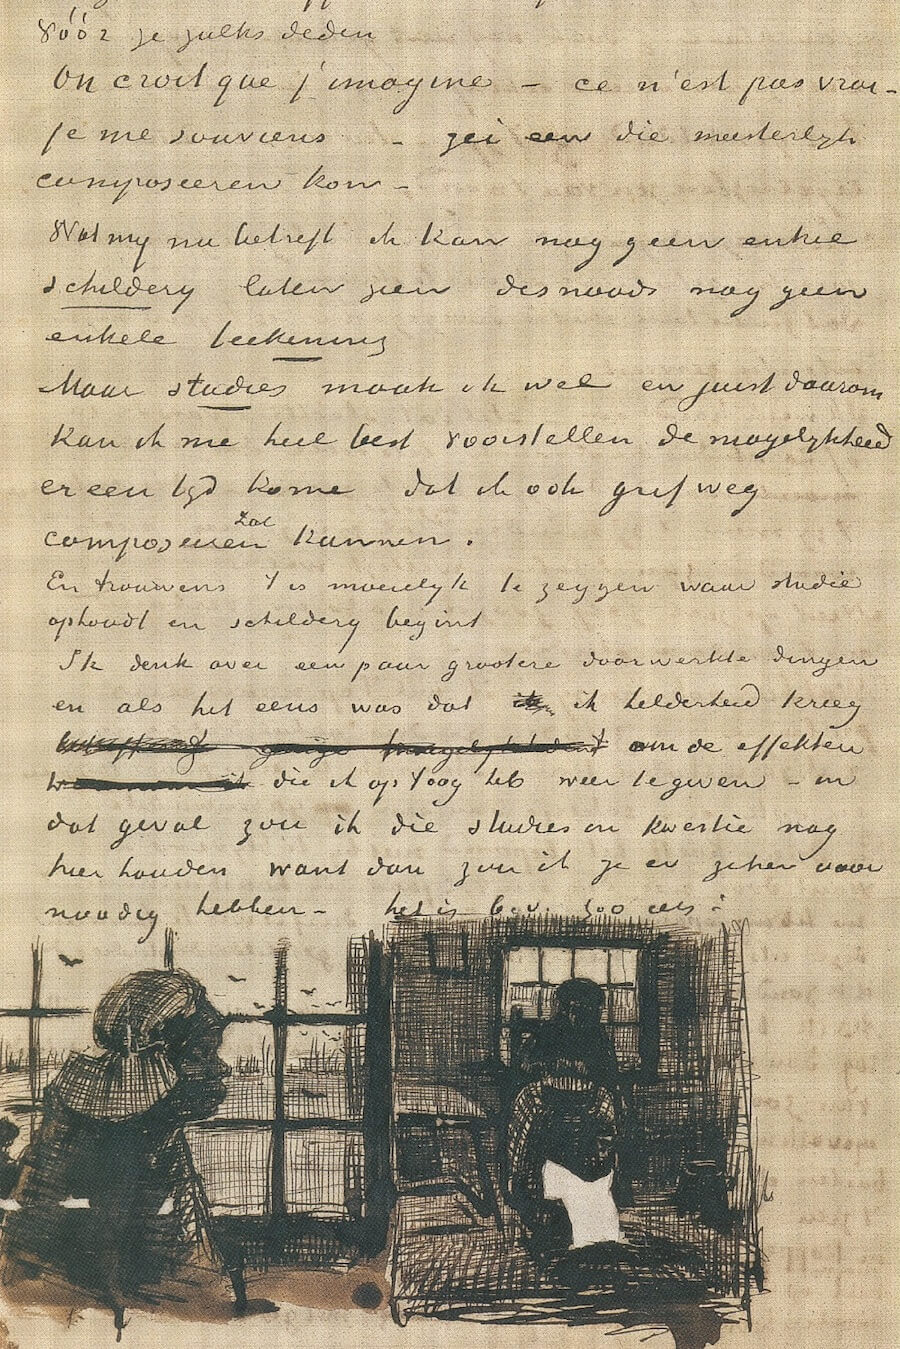 vóór je zulks deden
On croit que j'imagine – ce n'est pas vrai –
je me souviens – zei een die meesterlyk
composeeren kon –
Wat my nu betreft ik kan nog geen enkle
schildery laten zien desnoods nog geen
enkele teekening
Maar studies maak ik wel en juist daarom
kan ik me heel best voorstellen de mogelykheid
er een tyd kome dat ik ook grif weg
composeeren zal kunnen.
En trouwens 't is moeielyk te zeggen waar studie
ophoudt en schildery begint
Ik denk over een paar grootere doorwerkte dingen
en als het eens was dat ik helderheid kreeg
om de effekten
die ik op 't oog heb weer te geven – in
dat geval zou ik die studies in kwestie nog
hier houden want dan zou ik ze er zeker voor
noodig hebben – het is b.v. zoo iets: